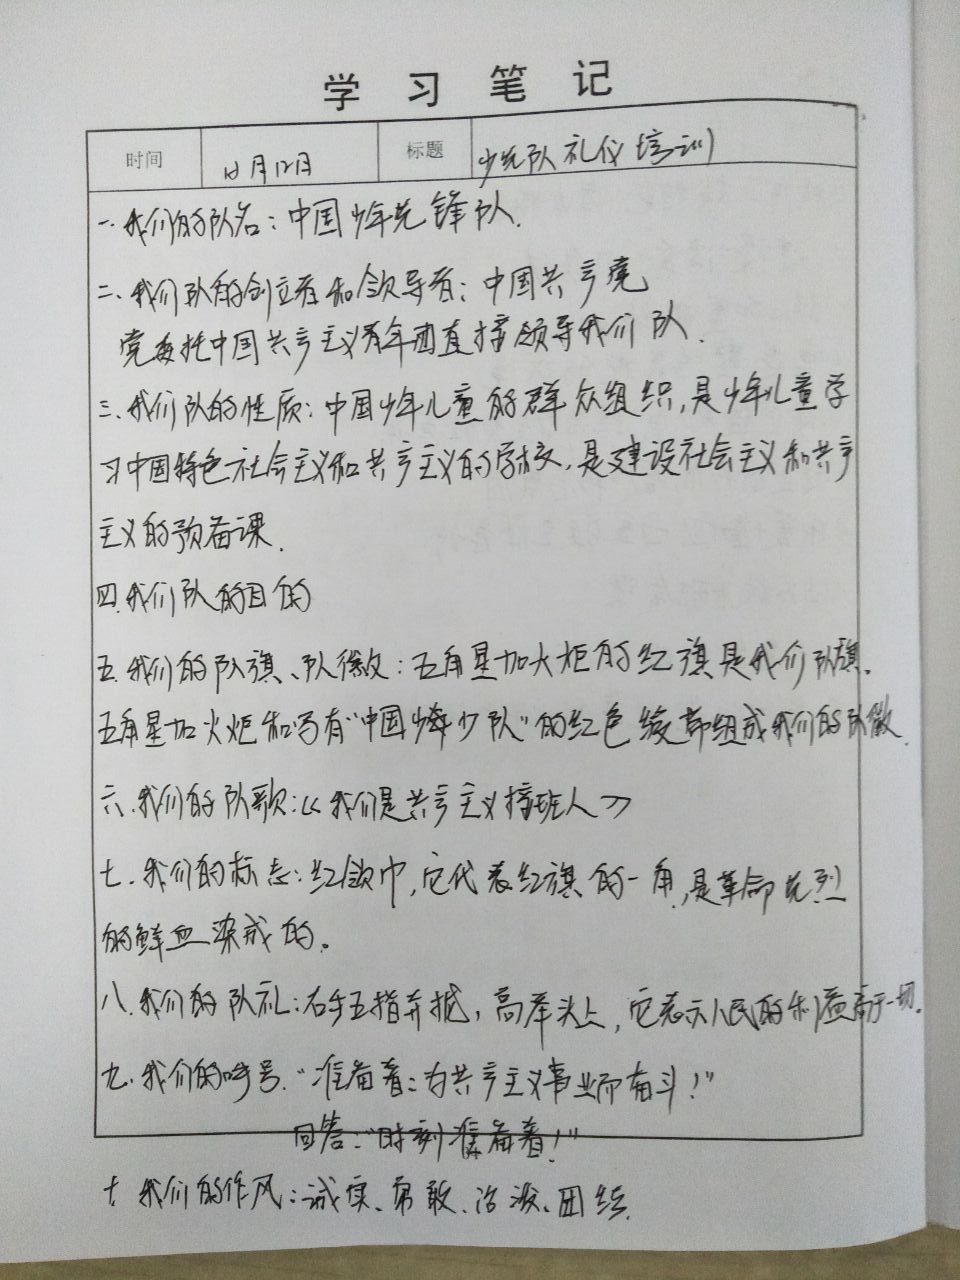 学习笔记
时间 12月12日 标题 少先队礼仪培训
一.我们的队名:中国少年先锋队.
二、我们队的创立者和领导者:中国共产党
党委托中国共产主义青年团直接领导我们队.
三、我们队的性质:中国少年儿童的群众组织,是少年儿童学
习中国特色社会主义和共产主义的学校,是建设社会主义和共产
主义的预备课.
四.我们队的目的
五.我们的队旗、队徽:五角星加火炬的红旗是我们队旗.
五角星加火炬和写有“中国少年少队”的红色绶带组成我们的队徽.
六.我们的队歌:《我们是共产主义接班人》
七.我们的标志:红领巾,它代表红旗的一角,是革命先烈
的鲜血染成的.
八.我们的队礼:右手五指并拢,高举头上,它表示人民的利益高于一切.
九.我们的呼号.“准备着:为共产主义事业而奋斗!”
回答:“时刻准备着!”
十 我们的作风:诚实、勇敢、活泼、团结.